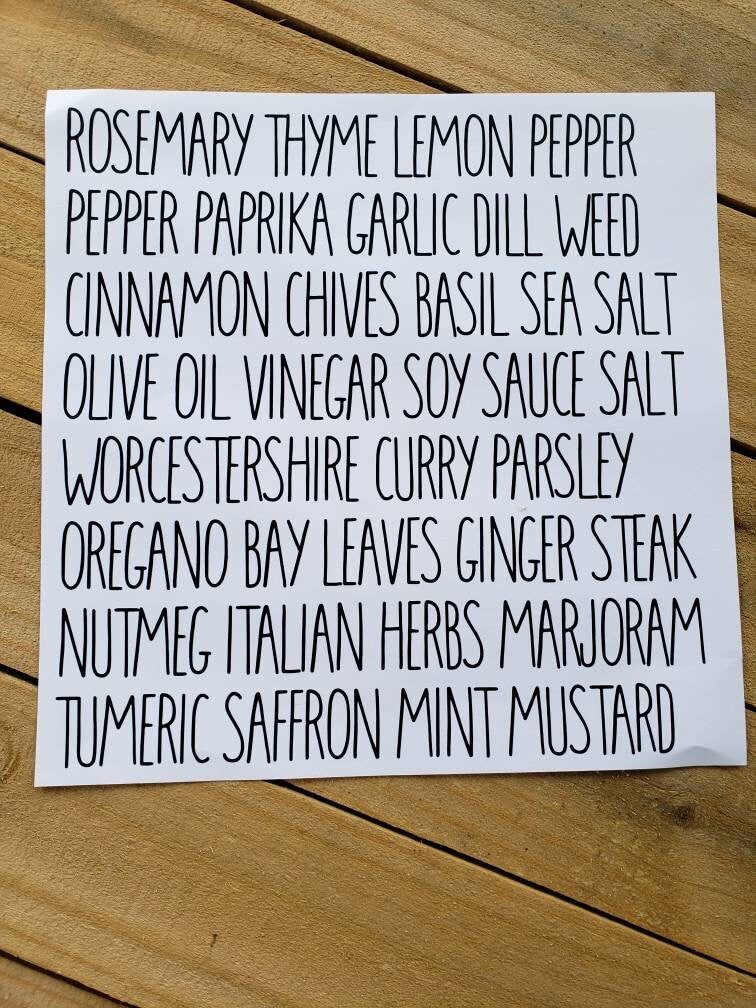 ROSEMARY THYME LEMON PEPPER
PEPPER PAPRIKA GARLIC DILL WEED
CINNAMON CHIVES BASIL SEA SALT
OLIVE OIL VINEGAR SOY SAUCE SALT
WORCESTERSHIRE CURRY PARSLEY
OREGANO BAY LEAVES GINGER STEAK
NUTMEG ITALIAN HERBS MARJORAM
TUMERIC SAFFRON MINT MUSTARD